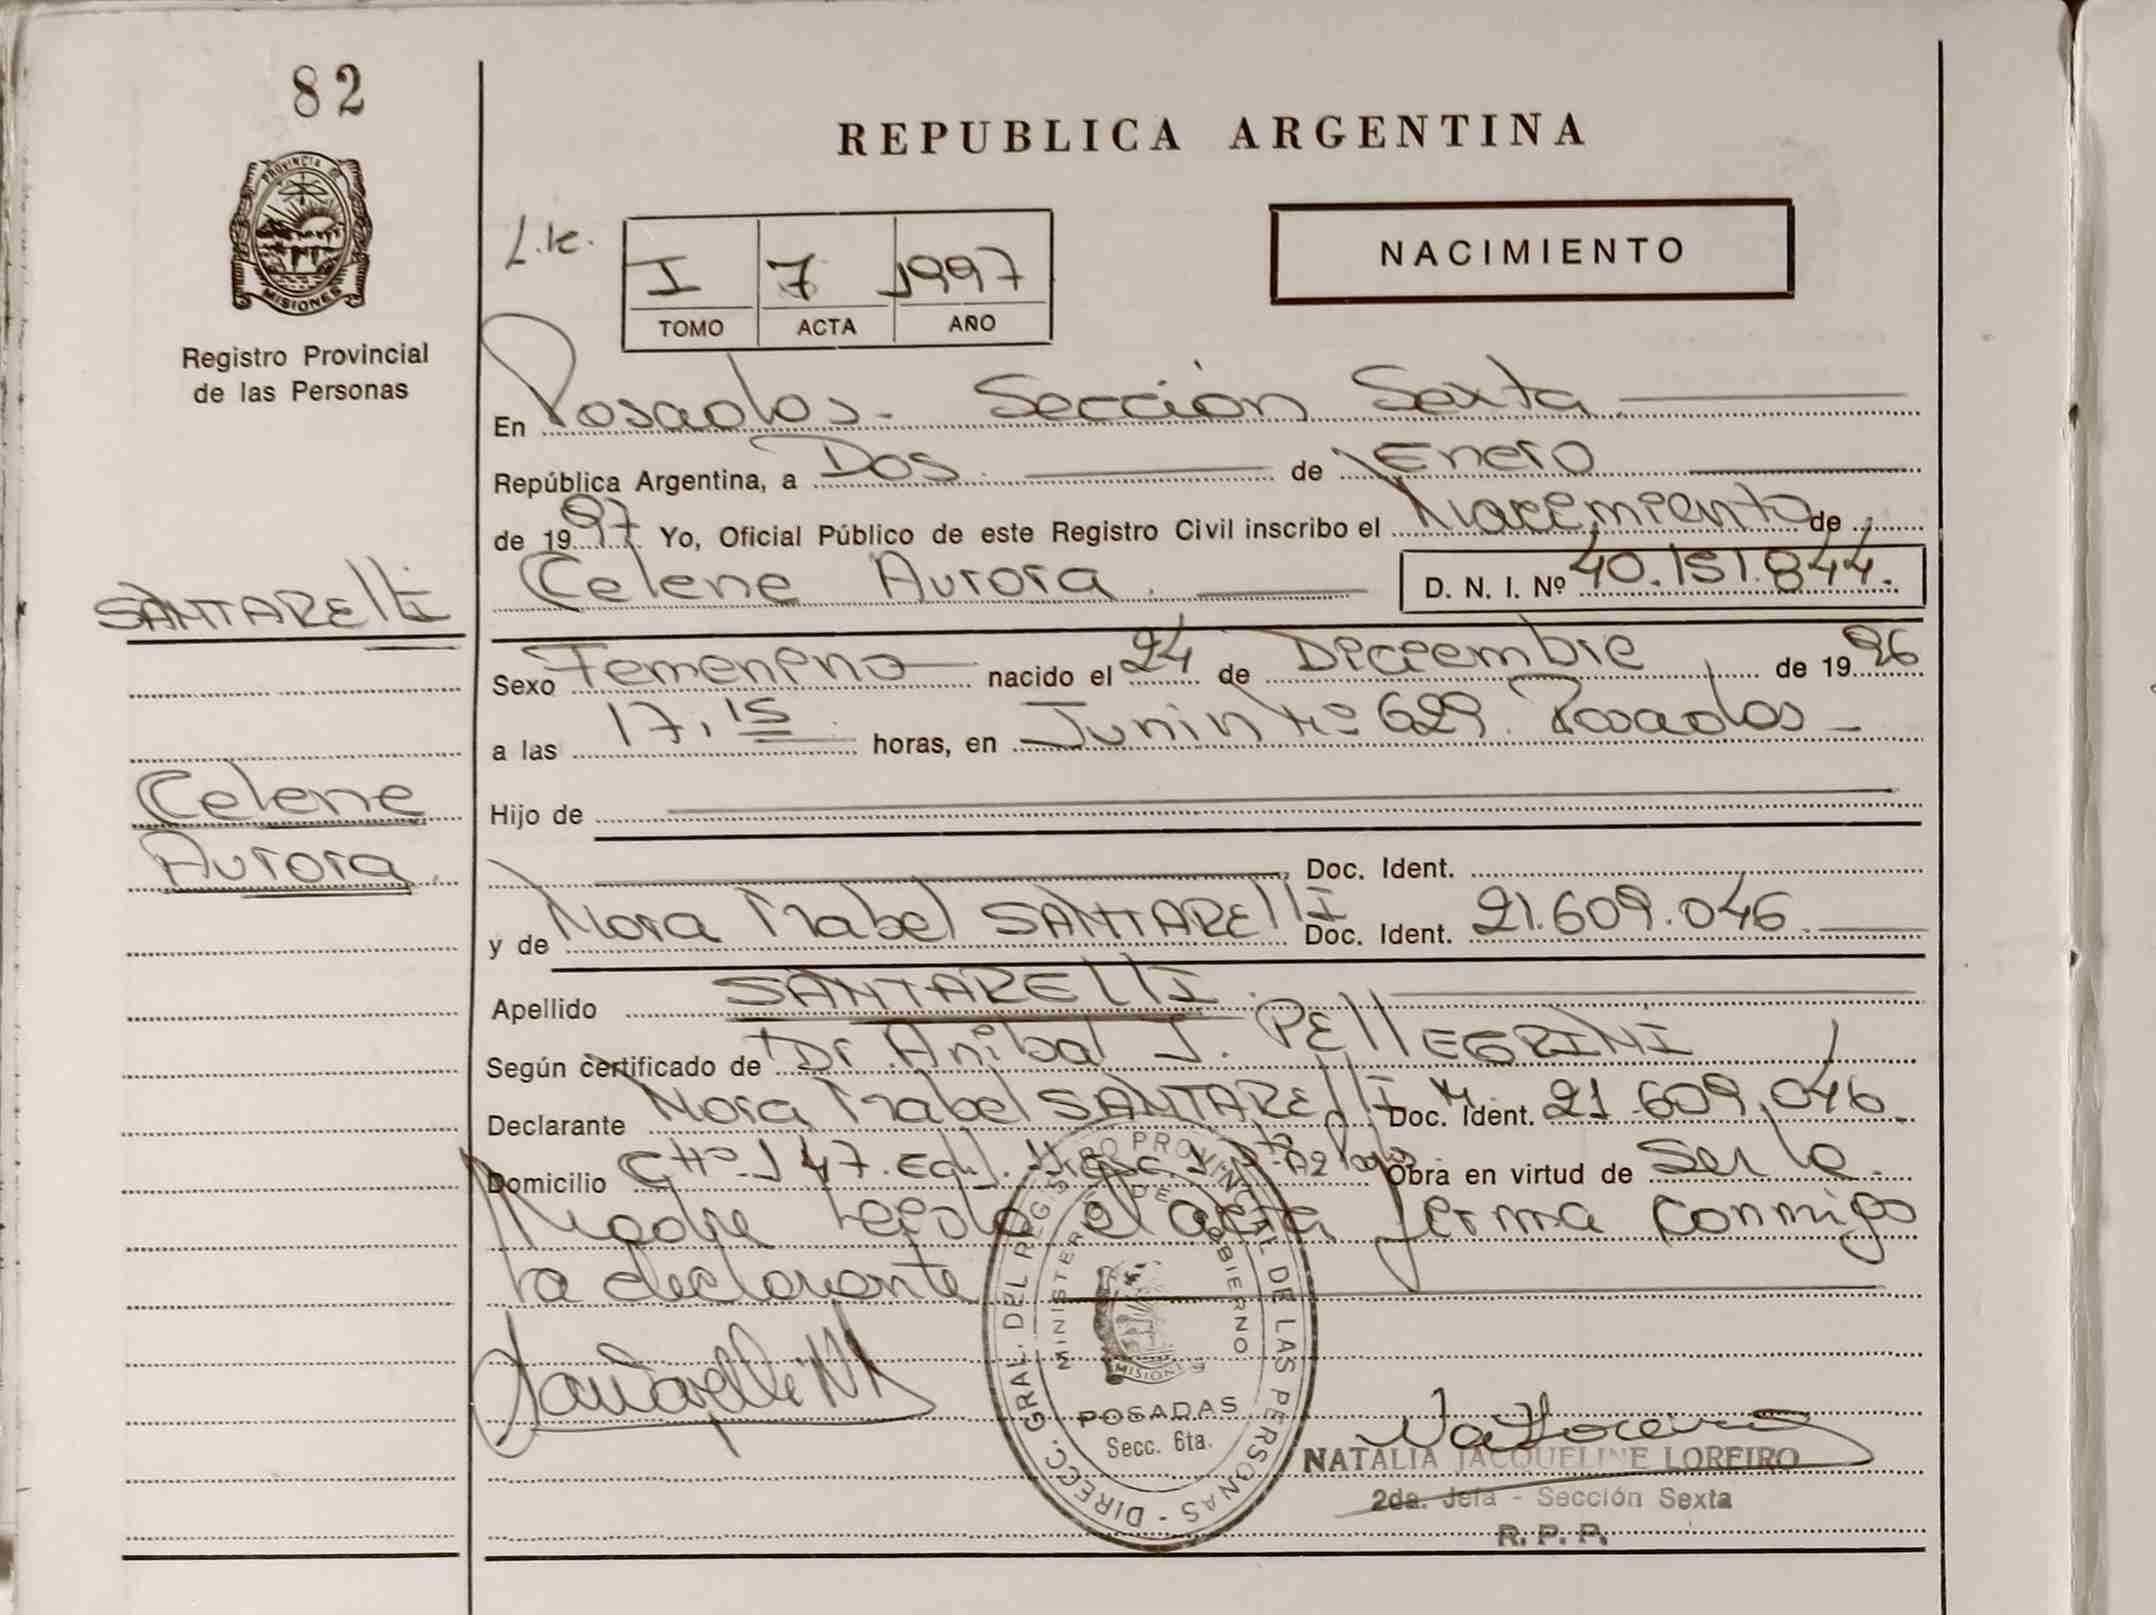 82
PROVINCIA DE
MISIONES
Registro Provincial
de las Personas
REPUBLICA ARGENTINA
I 7 1997
TOMO ACTA AÑO
NACIMIENTO
En Posadas - Sección Sexta
República Argentina, a Dos de Enero
de 1997 Yo, Oficial Público de este Registro Civil inscribo el Nacimiento de
Celene Aurora. D. N. I. Nº 40.151.844.
SANTARELLI
Celene
Aurora.
Sexo Femenino nacido el 24 de Diciembre de 1996
a las 17,15 horas, en Junin Nº 629. Posadas -
Hijo de
Doc. Ident.
y de Nora Isabel SANTARELLI Doc. Ident. 21.609.046
Apellido SANTARELLI.
Según certificado de Dr. Anibal J. PELLEGRINI
Declarante Nora Isabel SANTARELLI Doc. Ident. 21.609.046
Domicilio CHº 147. Obra en virtud de Ser la
Madre Leida el acta firma conmigo
la declarante
Santarelli N I
DIRECC. GRAL. DEL REGISTRO PROVINCIAL DE LAS PERSONAS -
MINISTERIO DE GOBIERNO
MISIONES
POSADAS
Secc. 6ta.
NATALIA JACQUELINE LOREIRO
2da. Jefa - Sección Sexta
R. P. P.